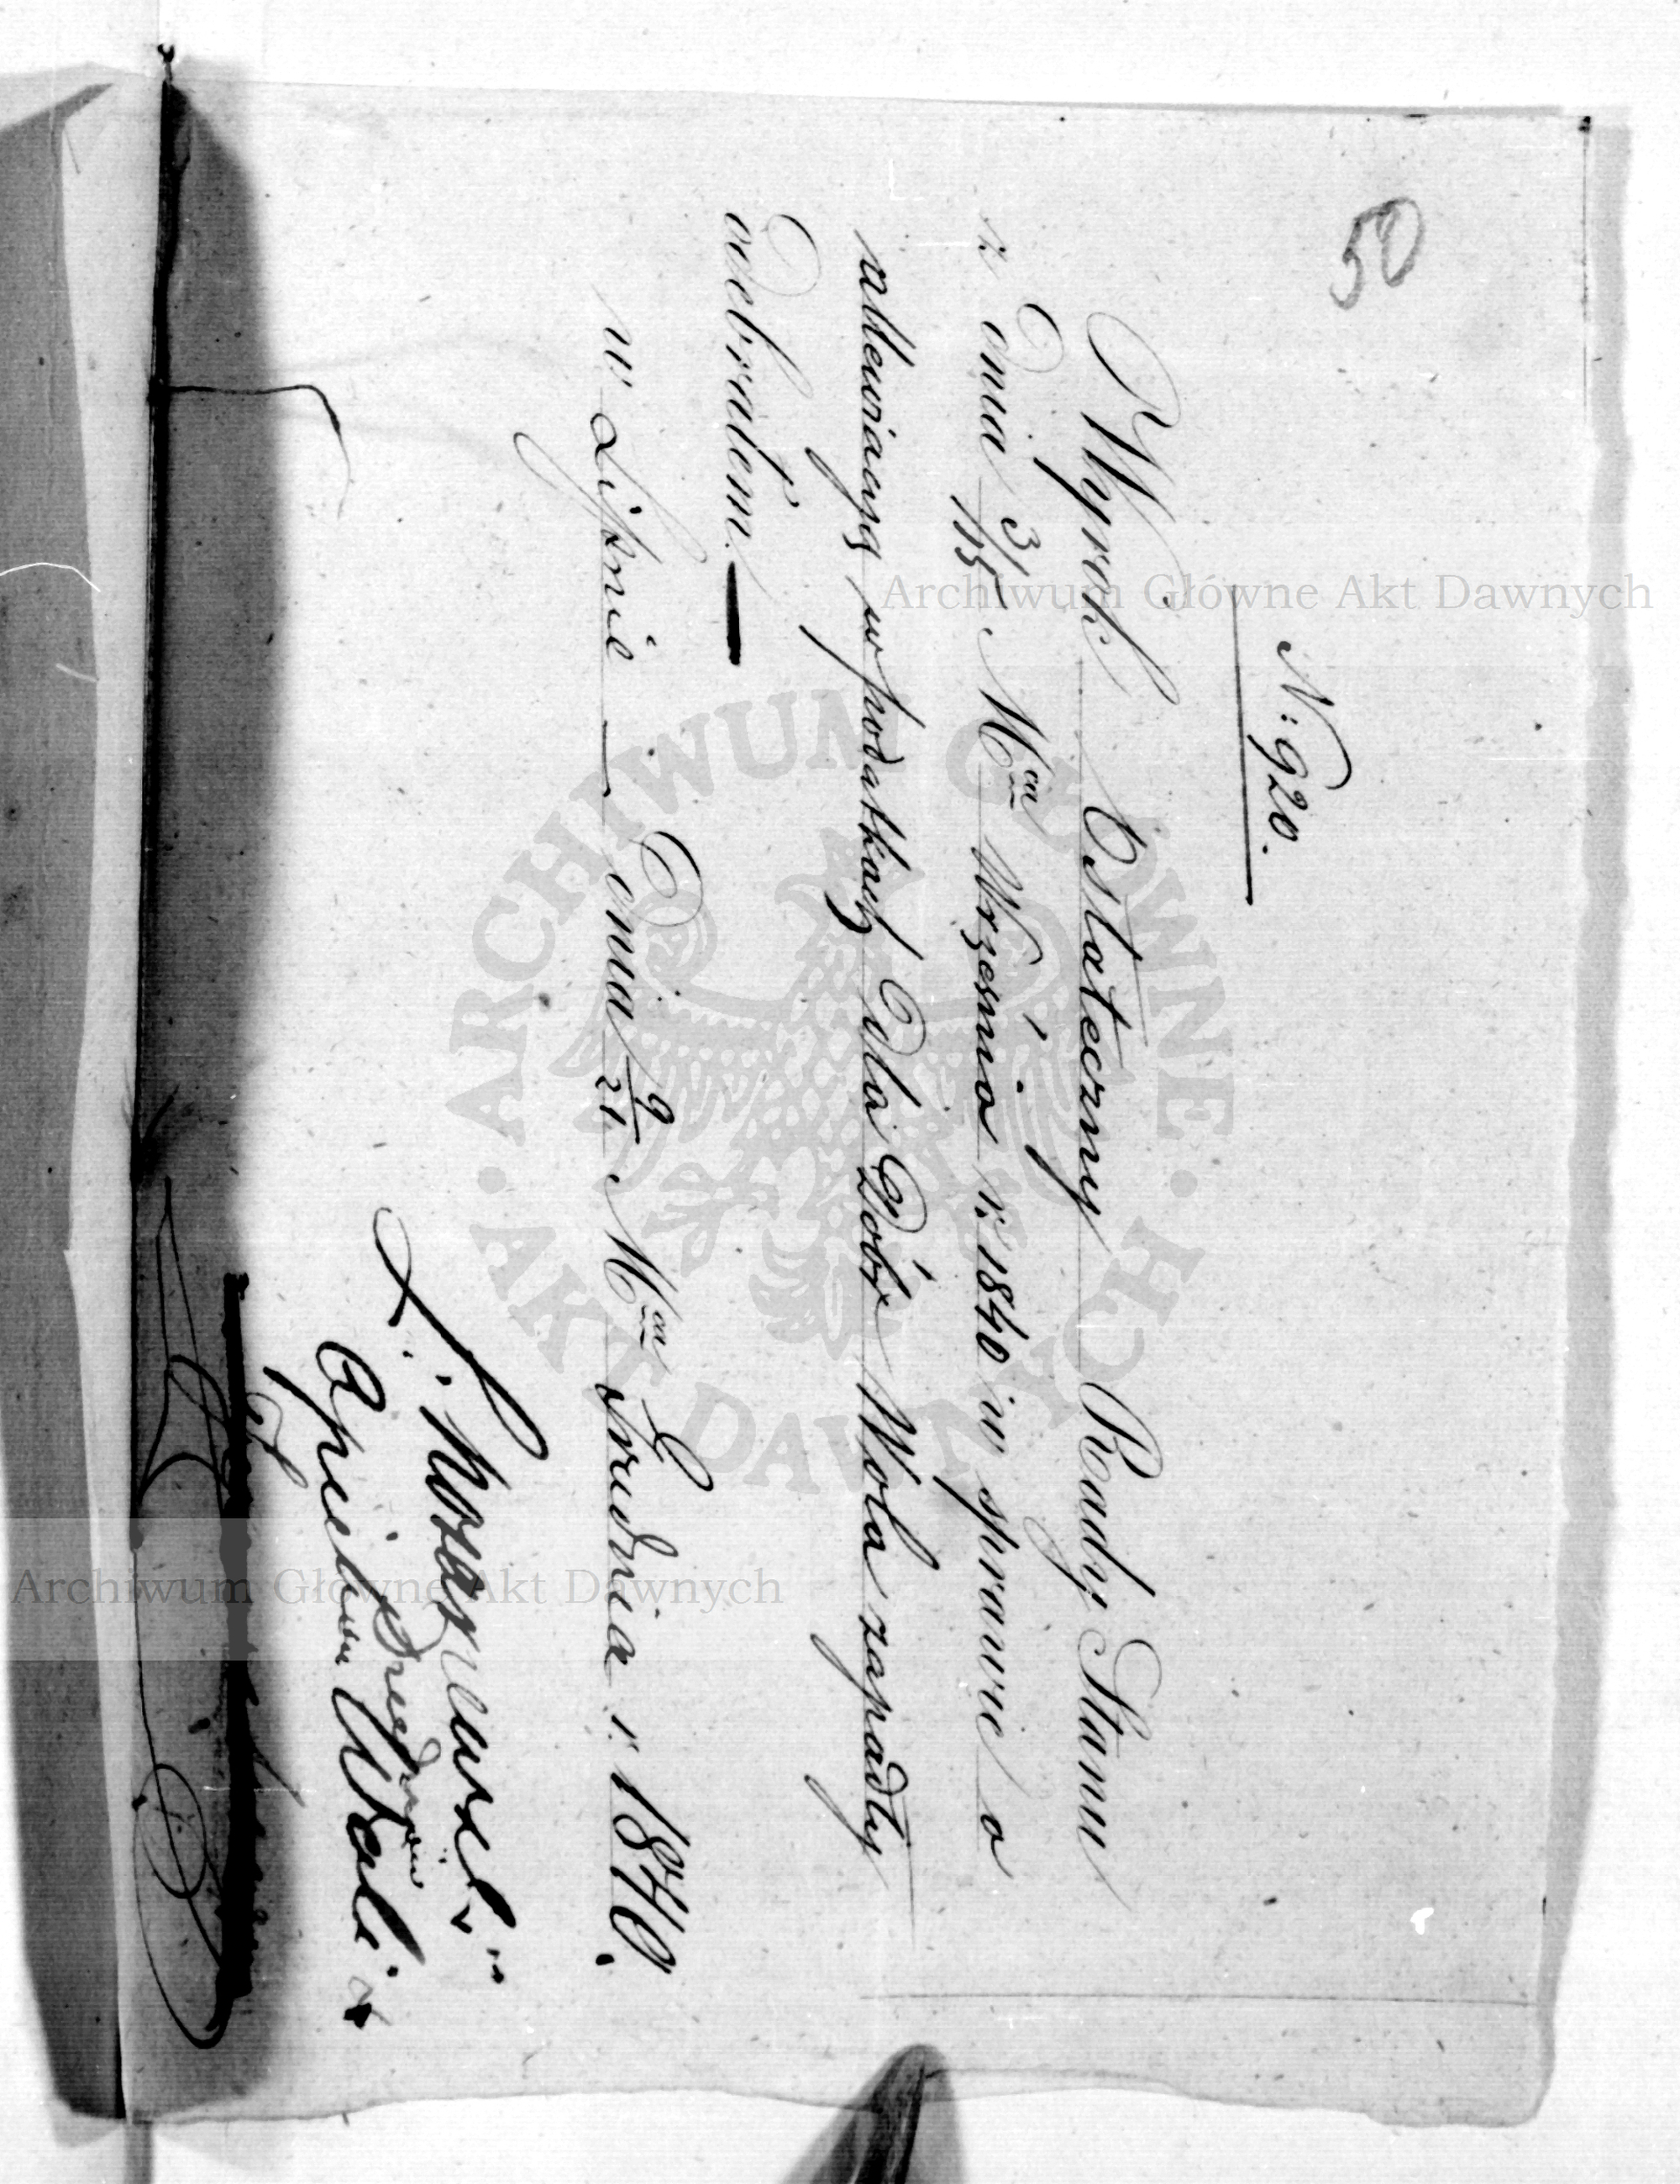 50
N: 920.
Wyrok Ostateczny Rady Stanu
z Dnia 3/15 Mca Września r. 1840 w sprawie o
allewiacyą w podatkach dla Dóbr Wola zapadły
odebrałem.
w Dnia 9/21 Mca Grudnia r. 1840.
Opiekun Woli
Archiwum Główne Akt Dawnych
Archiwum Główne Akt Dawnych
ARCHIWUM GŁÓWNE · AKT DAWNYCH ·